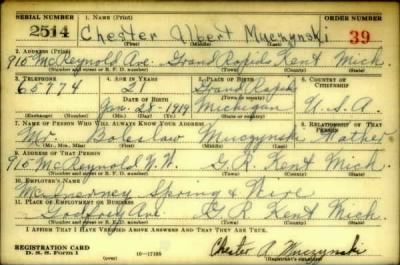 SERIAL NUMBER 1. NAME (Print) ORDER NUMBER
2514 Chester Albert Muczynski 39
(First) (Middle) (Last)
2. ADDRESS (Print)
915 McReynold Ave. Grand Rapids Kent Mich.
(Number and street or R. F. D. number) (Town) (County) (State)
3. TELEPHONE 4. AGE IN YEARS 5. PLACE OF BIRTH 6. COUNTRY OF CITIZENSHIP
65774 21 Grand Rapids
DATE OF BIRTH (Town or county)
Jan. 28 - 1919 Michigan U.S.A.
(Exchange) (Number) (Mo.) (Day) (Yr.) (State or country)
7. NAME OF PERSON WHO WILL ALWAYS KNOW YOUR ADDRESS 8. RELATIONSHIP OF THAT PERSON
Mr. Boleslaw Muczynski Father
(Mr., Mrs., Miss) (First) (Middle) (Last)
9. ADDRESS OF THAT PERSON
915 McReynold N.W. G.R. Kent Mich.
(Number and street or R. F. D. number) (Town) (County) (State)
10. EMPLOYER'S NAME
McInerney Spring & Wire
11. PLACE OF EMPLOYMENT OR BUSINESS
Godfrey Ave. G.R. Kent Mich.
(Number and street or R. F. D. number) (Town) (County) (State)
I AFFIRM THAT I HAVE VERIFIED ABOVE ANSWERS AND THAT THEY ARE TRUE.
REGISTRATION CARD
D. S. S. Form 1 16—17105 Chester A. Muczynski
(Registrant's signature)